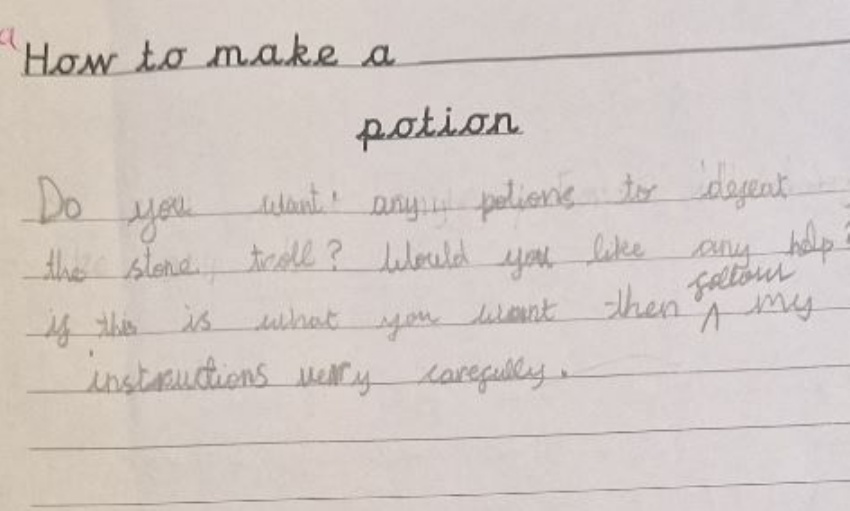 a
How to make a
potion
Do you want any potions to defeat
the stone troll? Would you like any help?
if this is what you want then ^ follow my
instructions very carefully.